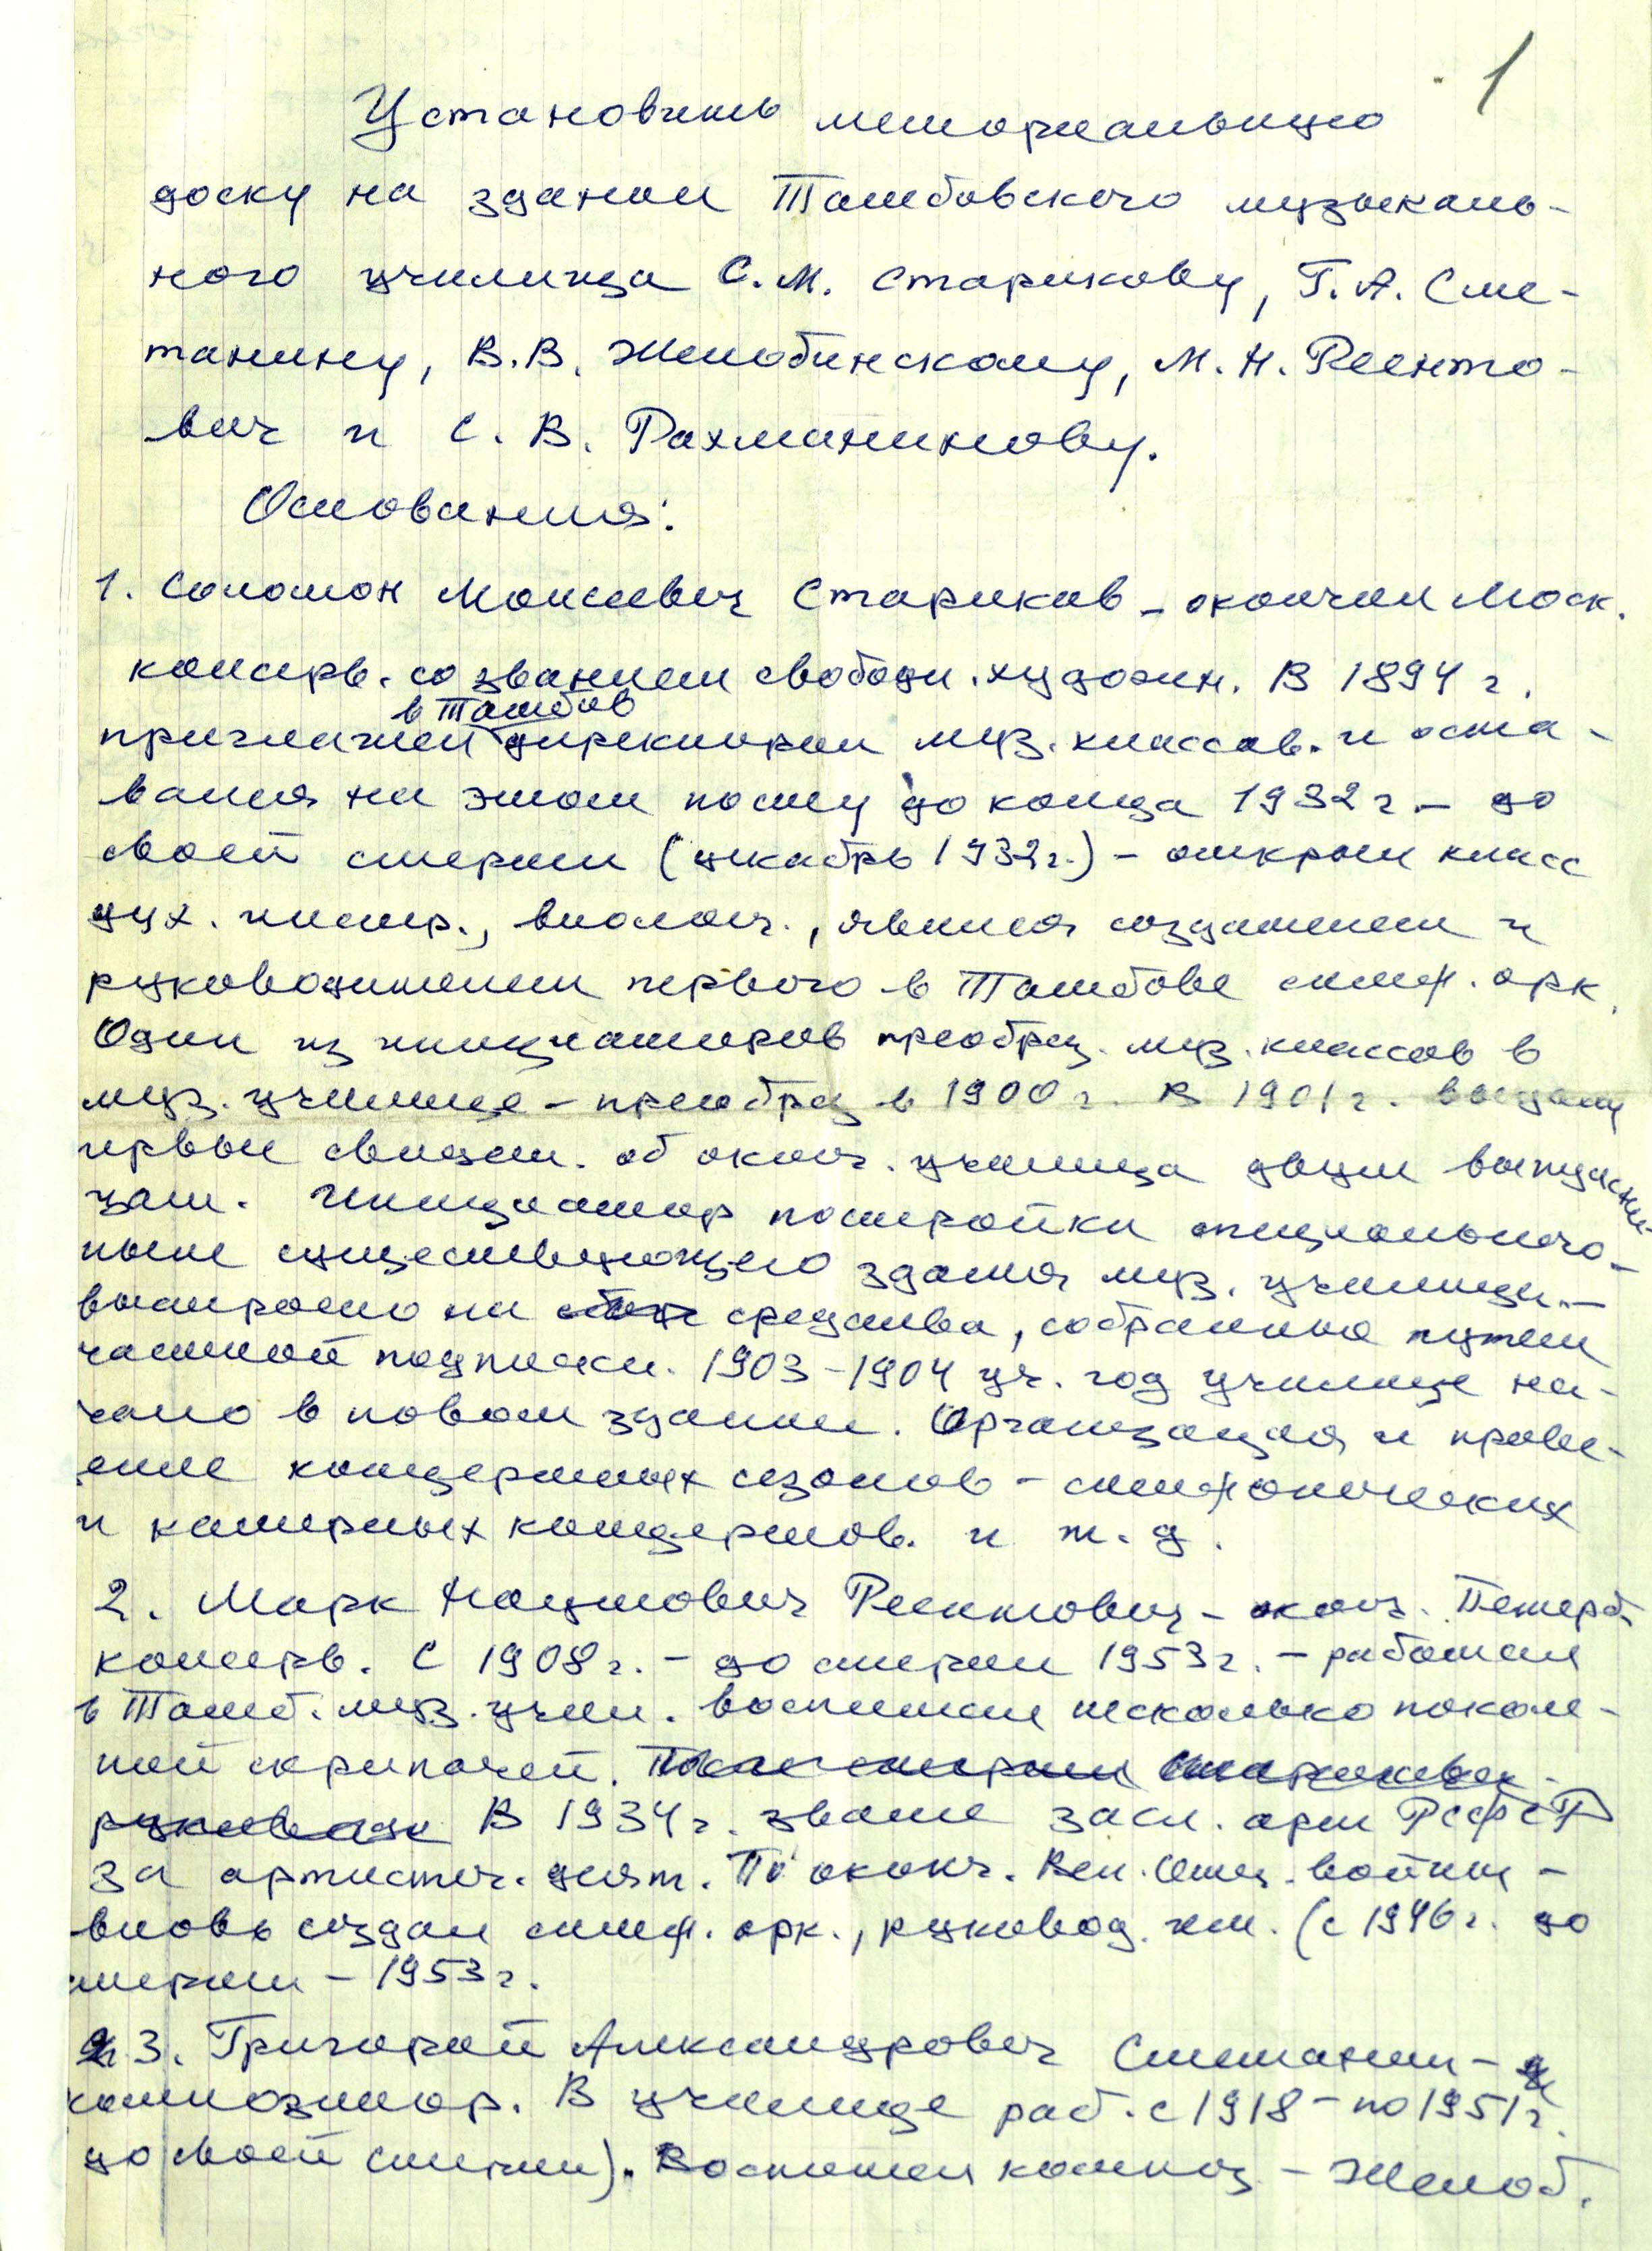 1
Установить мемориальную
доску на здании Тамбовского музыкаль-
ного училища С.М. Старикову, Г.А. Сме-
танину, В.В. Желобинскому, М.Н. Реенто-
вич и С.В. Рахманинову.
Основания:
1. Соломон Моисеевич Стариков - окончил Моск.
консерв. со званием свободн. художн. В 1894 г.
в Тамбов
приглашен директором муз. классов. и оста-
вался на этом посту до конца 1932 г. - до
своей смерти (декабрь 1932 г.) - открыл класс
дух. инстр., виолонч., явился создателем и
руководителем первого в Тамбове симф. орк.
Один из инициаторов преобраз. муз. классов в
муз. училище - преобраз в 1900 г. В 1901 г. выданы
первые свидет. об оконч. училища двум выпускни-
цам. Инициатор постройки специального -
ныне существующего здания муз. училища. -
выстроено на средства, собранные путем
частной подписки. 1903-1904 уч. год училище на-
чало в новом здании. Организация и прове-
дение концертных сезонов - симфонических
и камерных концертов. и т. д.
2. Марк Наумович Реентович - оконч. Петерб.
консерв. С 1908 г. - до смерти 1953 г. - работал
в Тамб. муз. учил. воспитал несколько поколе-
ний скрипачей. После смерти Старикова -
руковод В 1934 г. звание засл. арт РСФСР
за артистич. деят. По оконч. Вел. Отеч. войны -
вновь создал симф. орк., руковод. им. (с 1946 г. до
смерти - 1953 г.
3. Григорий Александрович Сметанин -
композитор. В училище раб. с 1918 - по 1951 г.
до своей смерти). Воспитал композ - Желоб.